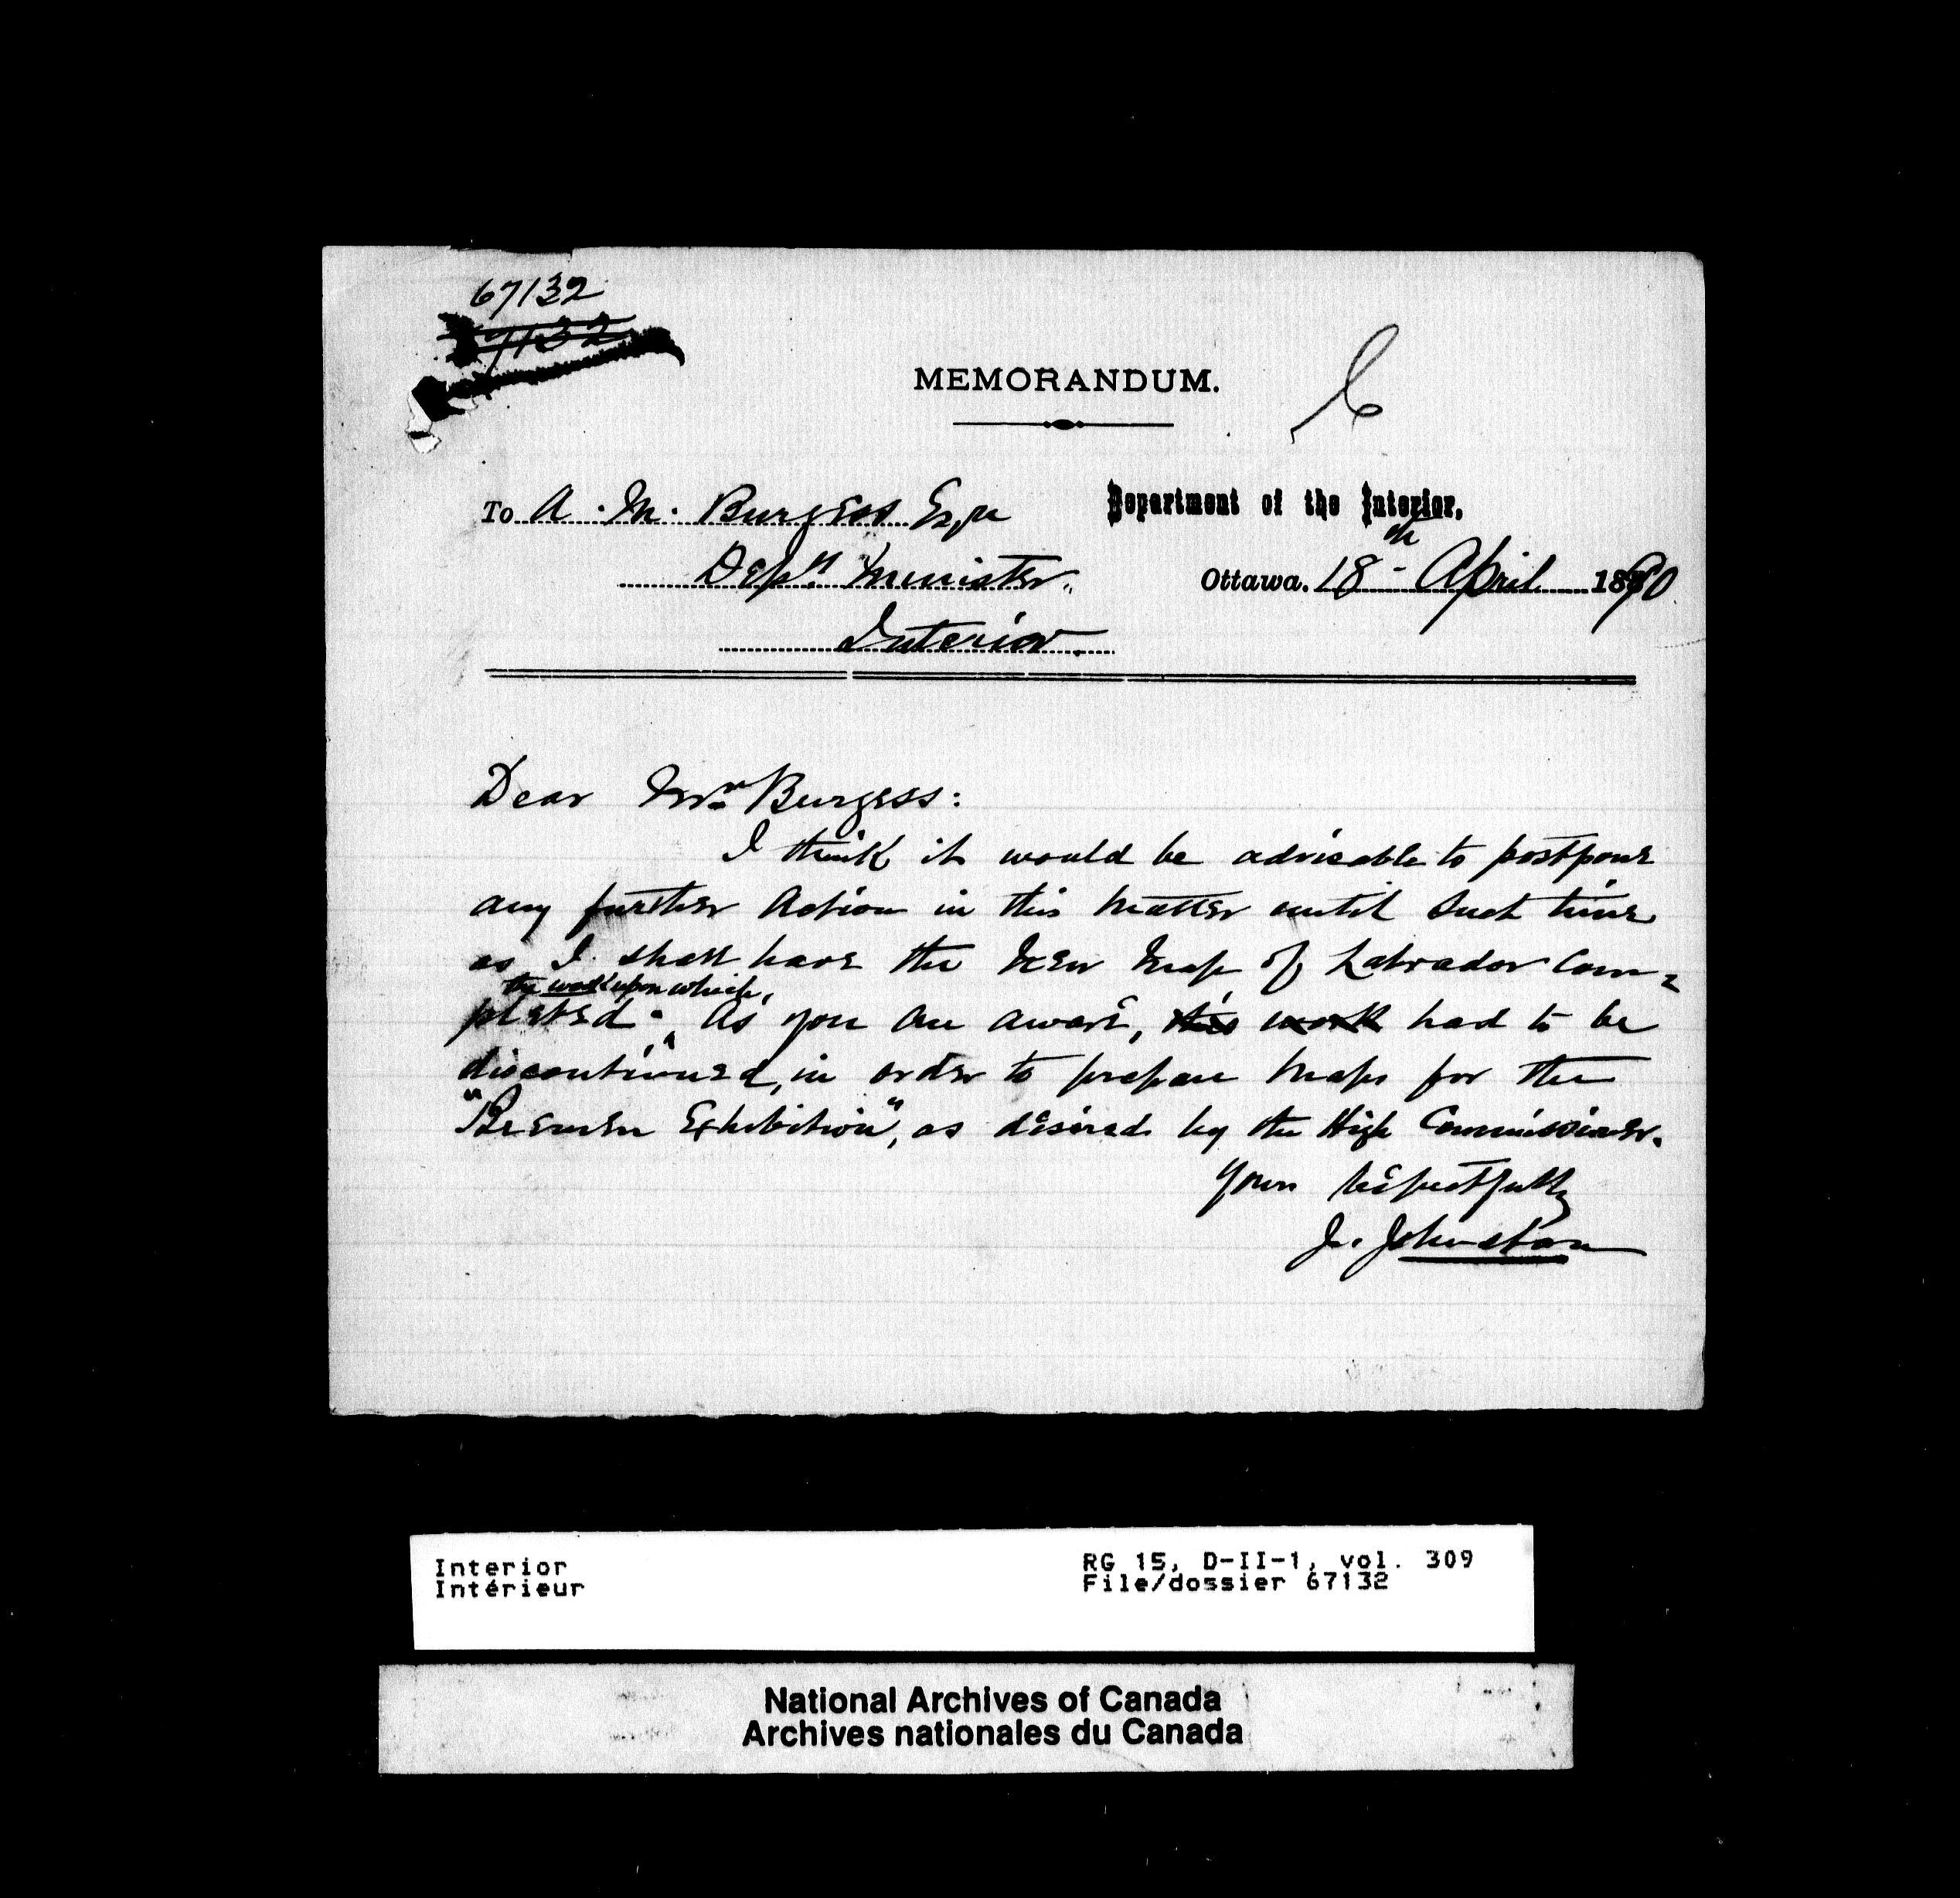 67132
7132
MEMORANDUM.
To A. M. Burgess Esqr
Department of the Interior,
Depy. Minister.
Ottawa. 18th April 1890
Interior.
Dear Mr Burgess:
I think it would be advisable to postpone
any further Action in this Matter until Such time
as I shall have the New Map of Labrador Com=
the work upon which,
pleted. As you are aware, this work had to be
discontinued, in order to prepare Maps for the
"Bremen Exhibition", as desired by the High Commissioner.
Yours Respectfully
J. Johnston
Interior
Intérieur
RG 15, D-II-1, vol. 309
File/dossier 67132
National Archives of Canada
Archives nationales du Canada